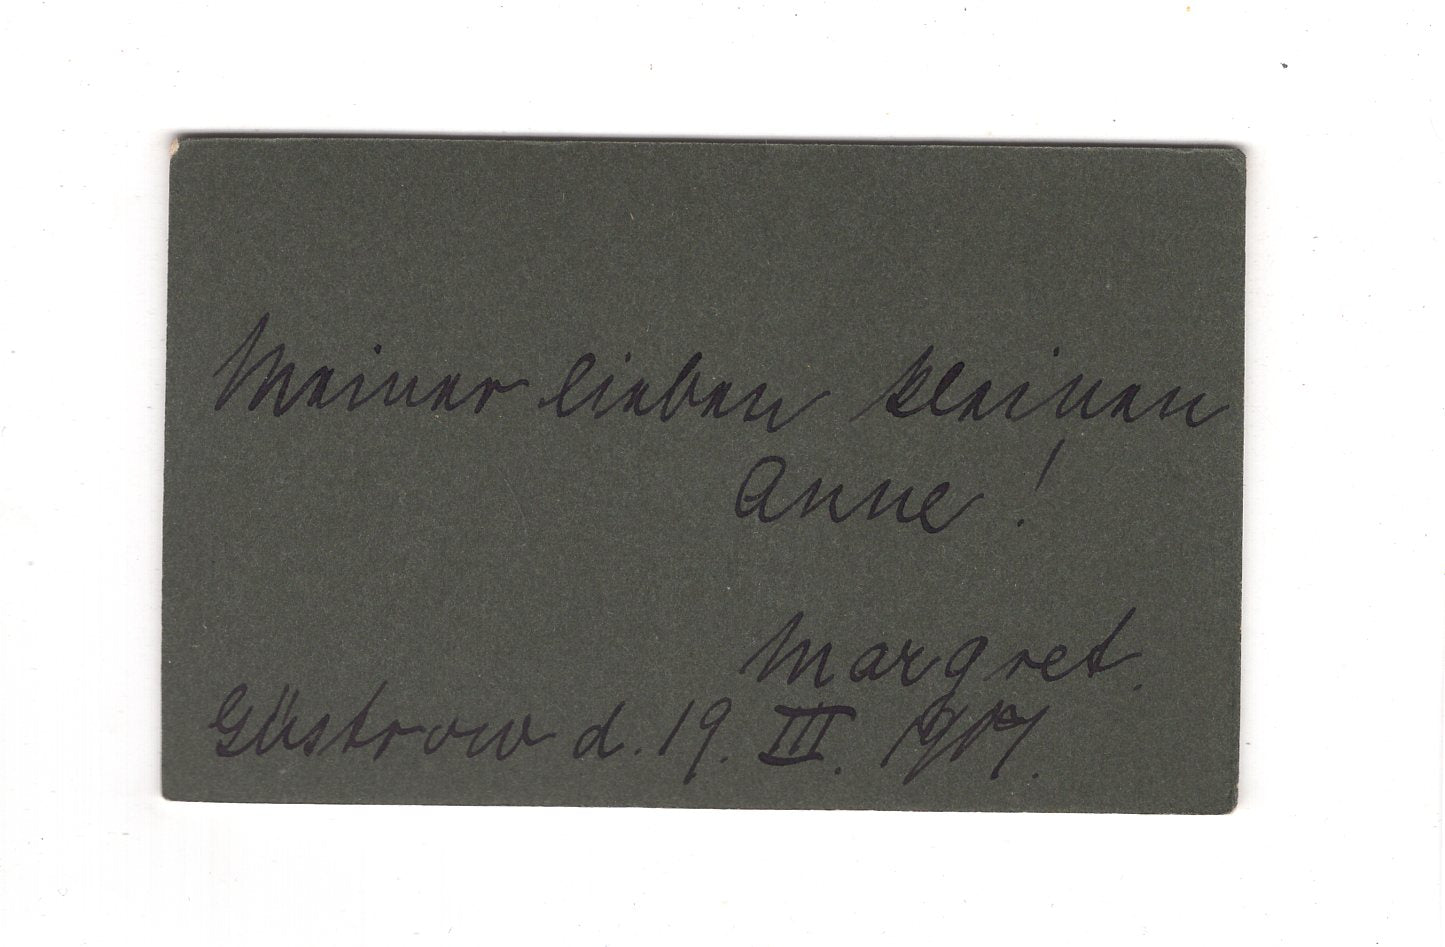 Meiner lieben kleinen
Anne!
Margret.
Güstrow d. 19. III. 1917.